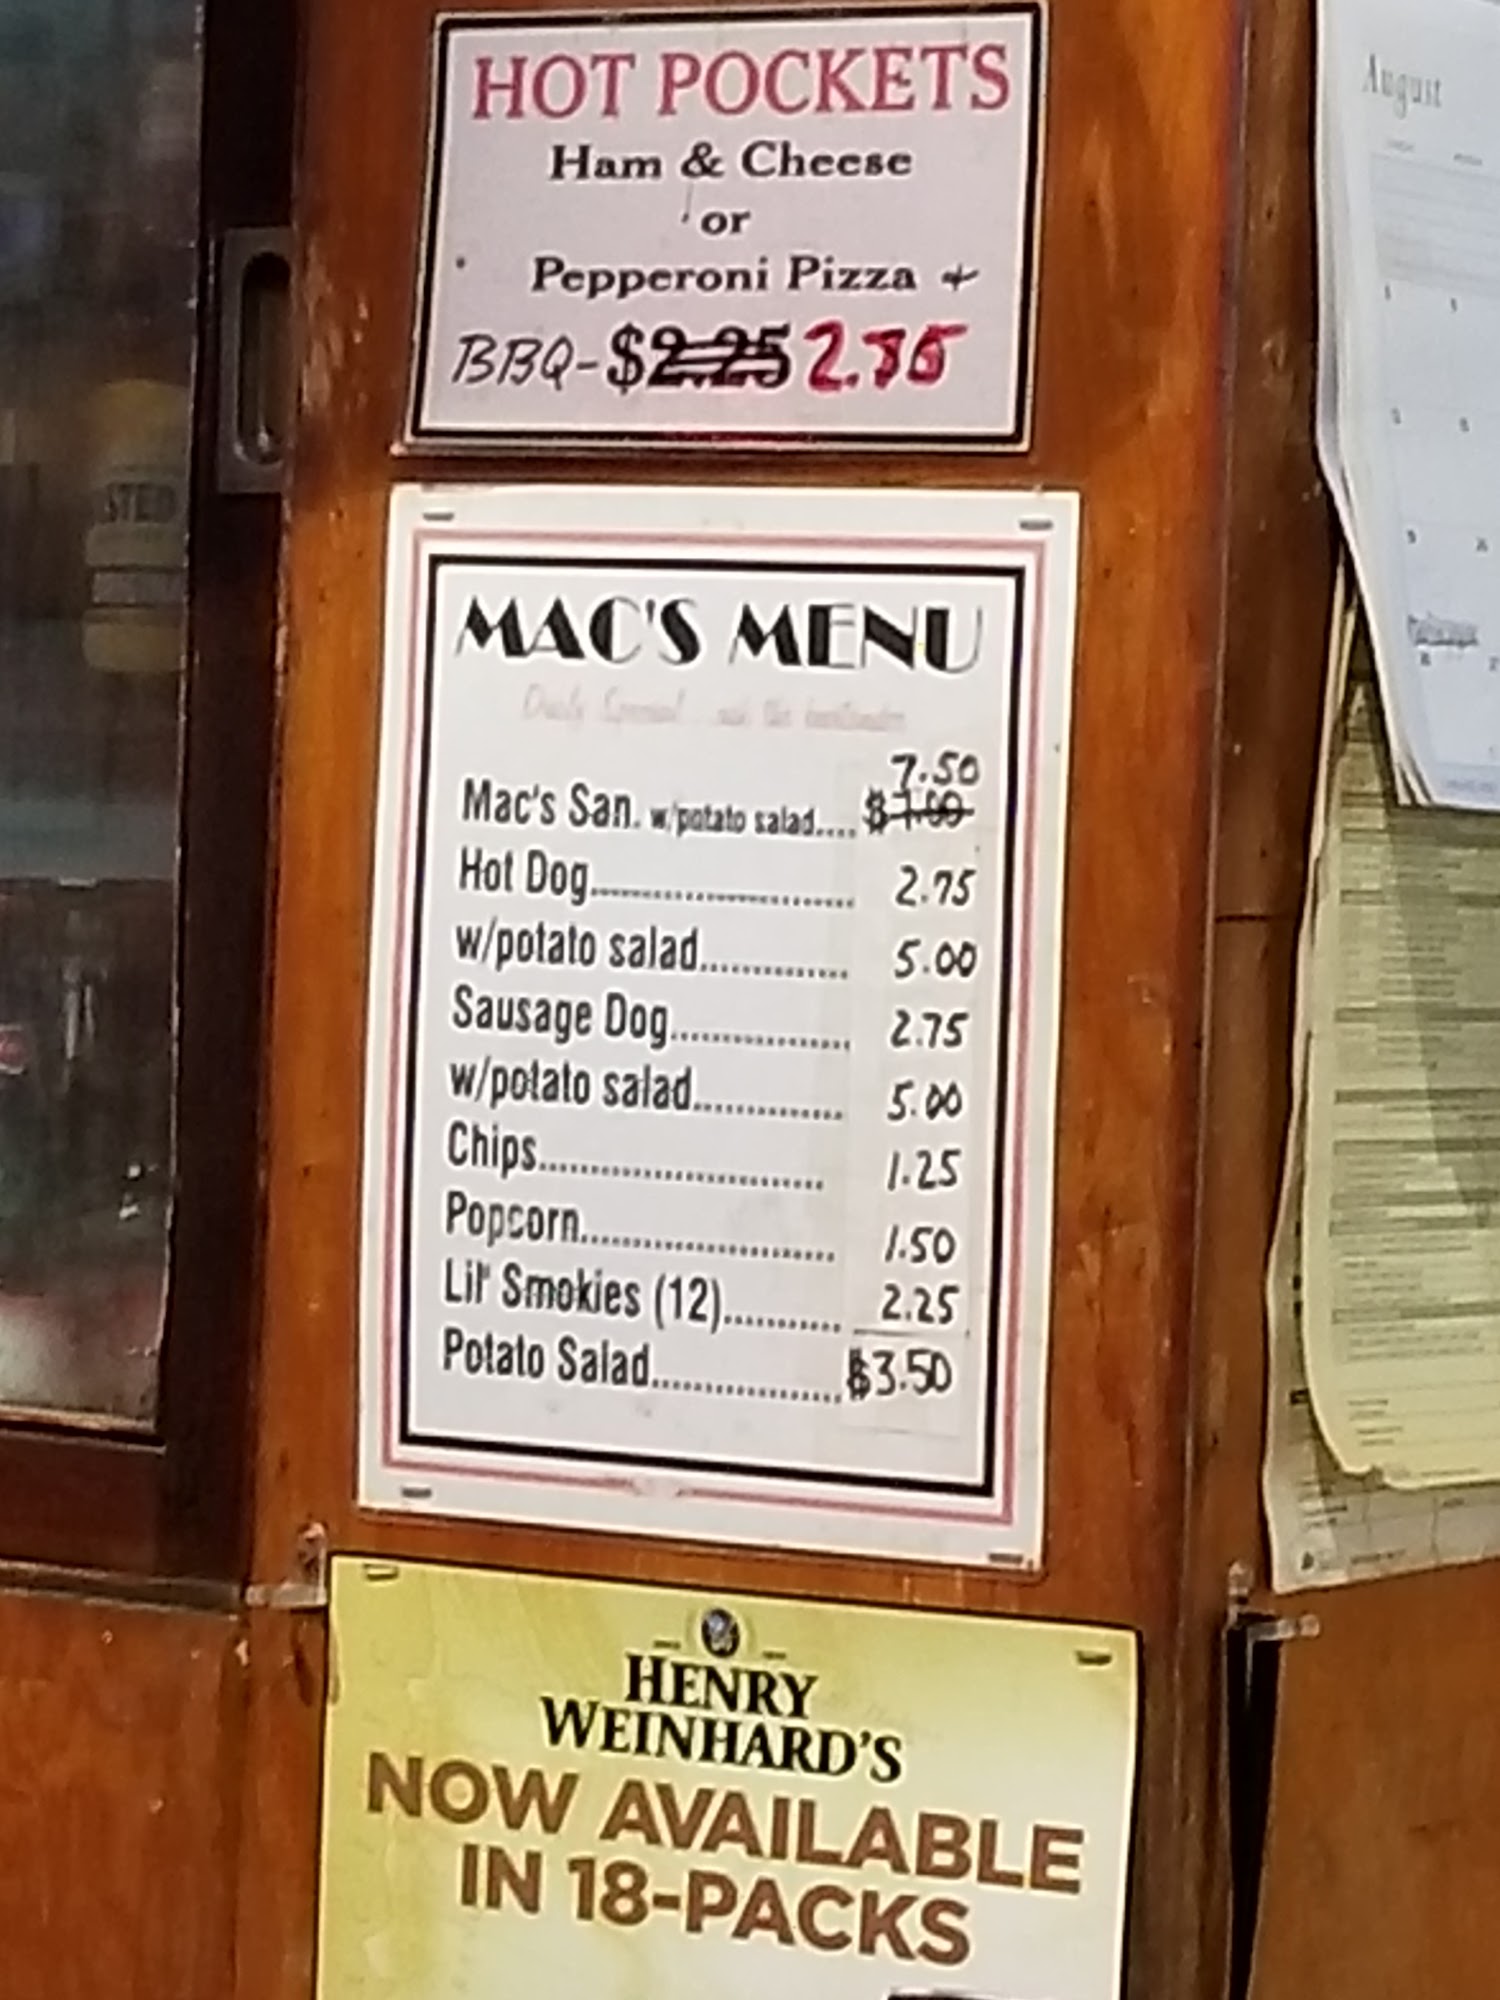 HOT POCKETS
Ham & Cheese
or
Pepperoni Pizza +
BBQ - $2.25 2.75
MAC'S MENU
7.50
Mac's San. w/potato salad.... $7.00
Hot Dog.......................... 2.75
w/potato salad.............. 5.00
Sausage Dog................. 2.75
w/potato salad.............. 5.00
Chips............................ 1.25
Popcorn......................... 1.50
Lil' Smokies (12)........... 2.25
Potato Salad..................$3.50
HENRY
WEINHARD'S
NOW AVAILABLE
IN 18-PACKS
August